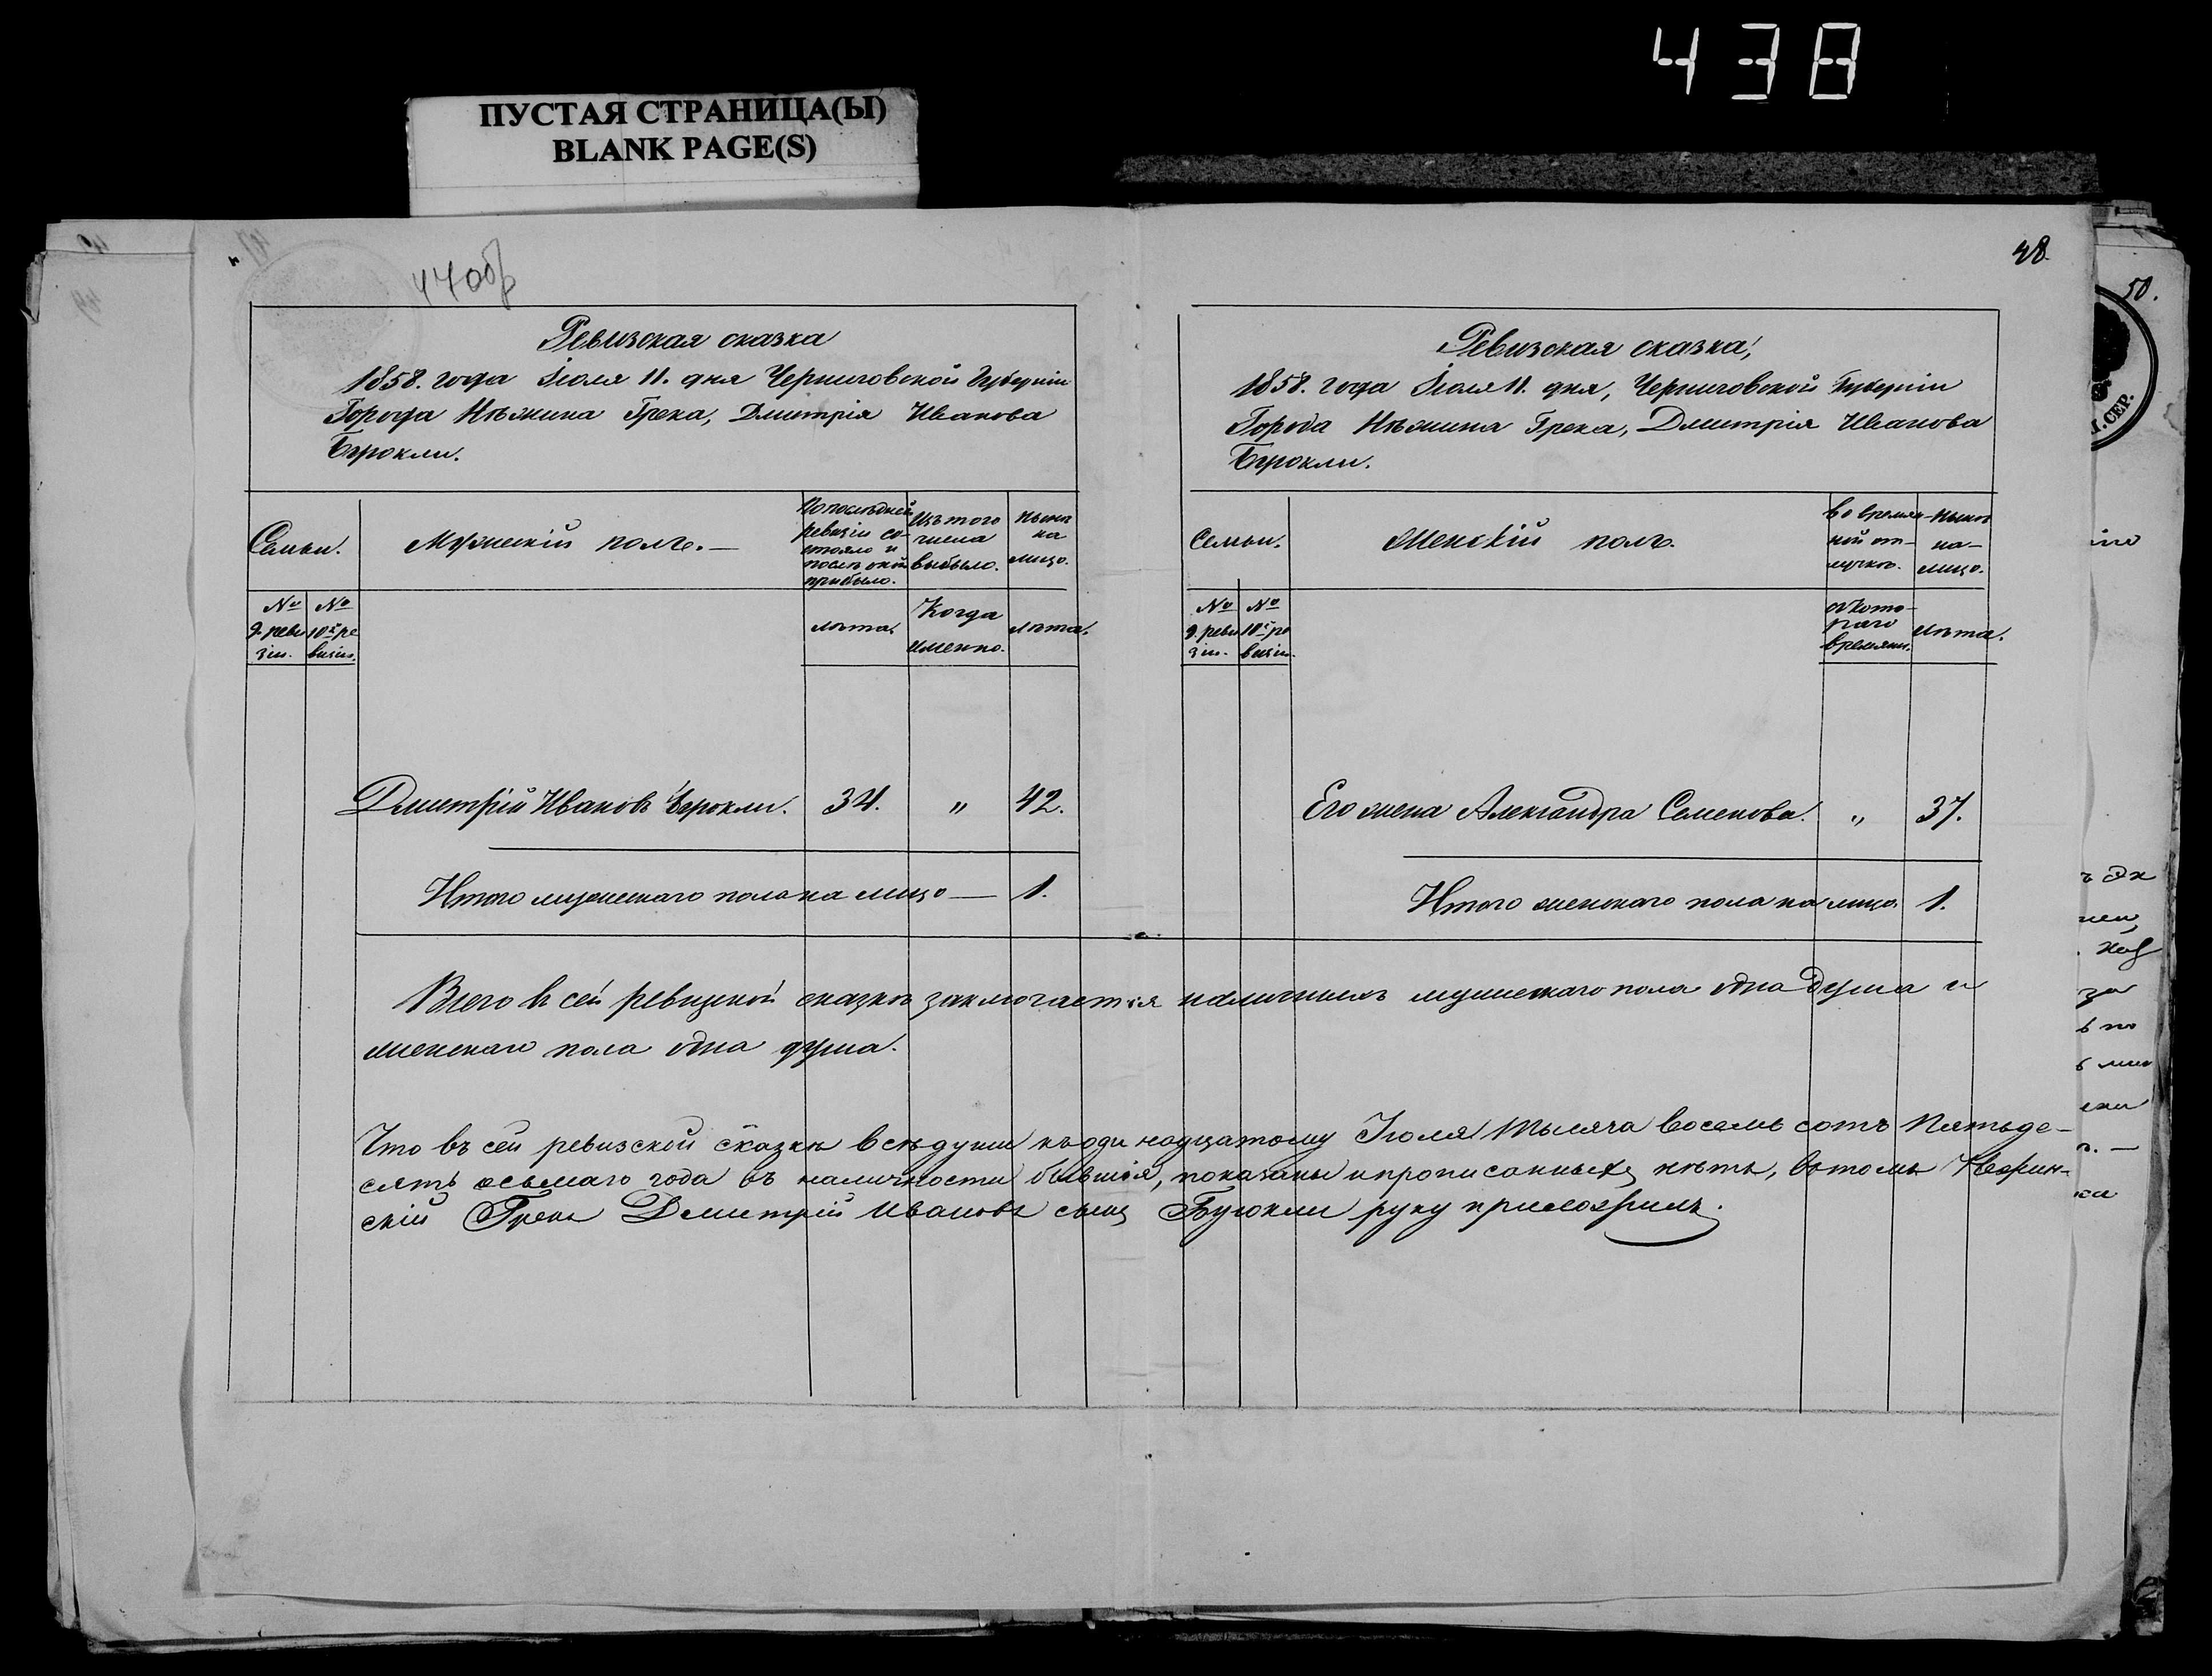 438
ПУСТАЯ СТРАНИЦА(Ы)
BLANK PAGE(S)
47 об
Ревизская сказка
1858. года Іюля 11. дня Черниговской Губерніи
Города Нѣжина Грека, Дмитрія Иванова
Буюкли.
Семьи.
Мужескій полъ.
По послѣдней ревизіи состояло и послѣ оной прибыло.
Изъ того числа выбыло.
Нынѣ на лицо.
№ 9. ревизіи.
№ 10й ревизіи.
лѣта.
Когда именно.
лѣта.
Дмитрій Ивановъ Буюкли. 34. " 42.
Итого мужескаго пола на лицо — 1.
48
Ревизская сказка,
1858. года Іюля 11. дня, Черниговской Губерніи
Города Нѣжина Грека, Дмитрія Иванова
Буюкли.
Семьи.
Женскій полъ.
Во времянной отлучкѣ.
Нынѣ на лицо.
№ 9. ревизіи.
№ 10й ревизіи.
съ котораго времяни.
Лѣта.
Его жена Александра Семенова. " 37.
Итого женскаго пола на лицо. 1.
Всего въ сей ревизской сказкѣ заключается наличныхъ мужескаго пола одна душа и
женскаго пола одна душа.
Что въ сей ревизской сказкѣ всѣ души къ одинадцатому Іюля тысяча восемь сотъ Пятьде-
сятъ осьмаго года въ наличности бывшія, показаны и прописанныхъ нѣтъ, въ томъ Нежин-
скій Грекъ Дмитрій Ивановъ сынъ Буюкли руку приложилъ.
50.
СЕР.